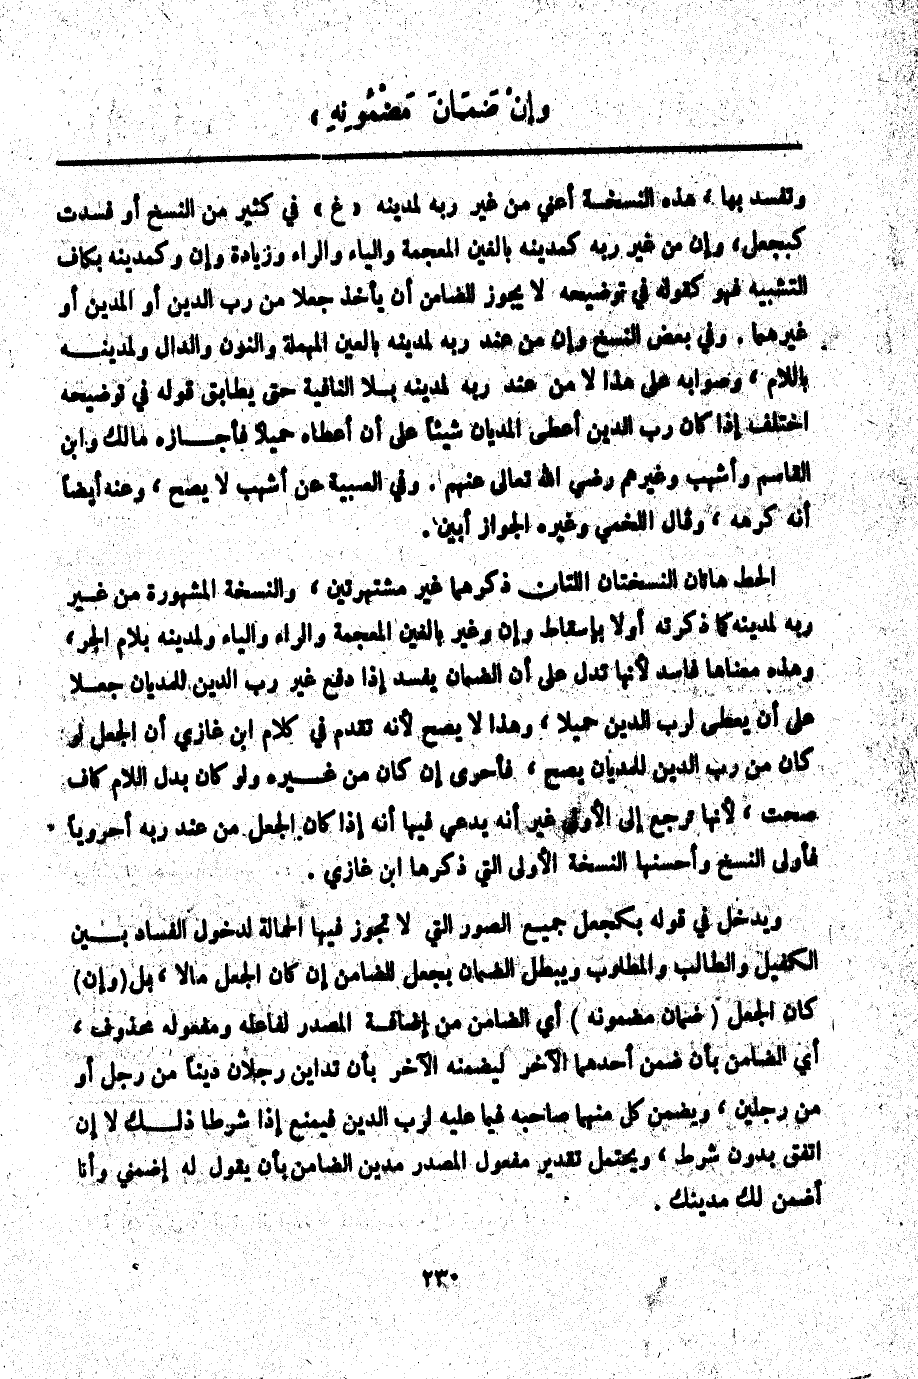 وإنْ ضَمَانَ مَضْمُونِهِ ،
وتفسد بها ، هذه النسخة أعني من غير ربه لمدينه « غ » في كثير من النسخ أو فسدت
كبجعل، وإن من غير ربه كمدينه بالغين المعجمة والياء والراء وزيادة وإن وكمدينه بكاف
التشبيه فهو كقوله في توضيحه لا يجوز للضامن أن يأخذ جعلا من رب الدين أو المدين أو
غيرهما . وفي بعض النسخ وإن من عند ربه لمدينه بالعين المهملة والنون والدال ولمدينه
باللام ، وصوابه على هذا لا من عند ربه لمدينه بلا النافية حتى يطابق قوله في توضيحه
اختلف إذا كان رب الدين أعطى المديان شيئاً على أن أعطاه حميلاً فأجازه مالك وابن
القاسم وأشهب وغيرهم رضي الله تعالى عنهم . وفي العتبية عن أشهب لا يصح ، وعنه أيضاً
أنه كرهه ، وقال اللخمي وغيره الجواز أبين .
الحط هاتان النسختان اللتان ذكرهما غير مشتهرتين ، والنسخة المشهورة من غير
ربه لمدينه كما ذكرته أولا بإسقاط وإن وغير بالغين المعجمة والراء والياء ولمدينه بلام الجر،
وهذه معناها فاسد لأنها تدل على أن الضمان يفسد إذا دفع غير رب الدين للمديان جعلا
على أن يعطى لرب الدين حميلا ، وهذا لا يصح لأنه تقدم في كلام ابن غازي أن الجعل لو
كان من رب الدين للمديان يصح ، فأحرى إن كان من غيره ولو كان بدل اللام كاف
صحت ، لأنها ترجع إلى الأولى غير أنه يدعي فيها أنه إذا كان الجعل من عند ربه أحروياً
فأولى النسخ وأحسنها النسخة الأولى التي ذكرها ابن غازي .
ويدخل في قوله بكجعل جميع الصور التي لا تجوز فيها الحمالة لدخول الفساد بين
الكفيل والطالب والمطلوب ويبطل الضمان بجعل للضامن إن كان الجعل مالا ، بل (وإن)
كان الجعل ( ضمان مضمونه ) أي الضامن من إضافة المصدر لفاعله ومفعوله محذوف ،
أي الضامن بأن ضمن أحدهما الآخر ليضمنه الآخر بأن تداين رجلان ديناً من رجل أو
من رجلين ، ويضمن كل منهما صاحبه فيما عليه لرب الدين فيمنع إذا شرطا ذلك لا إن
اتفق بدون شرط ، ويحتمل تقدير مفعول المصدر مدين الضامن بأن يقول له إضمني وأنا
أضمن لك مدينك .
٢٣٠